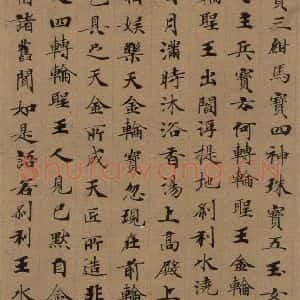 寶三紺馬寶四神珠寶五玉女
王兵寶云何轉輪聖王金輪
輪聖王出閻浮提地剎利水澆
月滿時沐浴香湯上高殿上
娛樂天金輪寶忽現在前輪
具足天金所成天匠所造非
四轉輪聖王人見已默自念
諸舊聞如是語若剎利王水